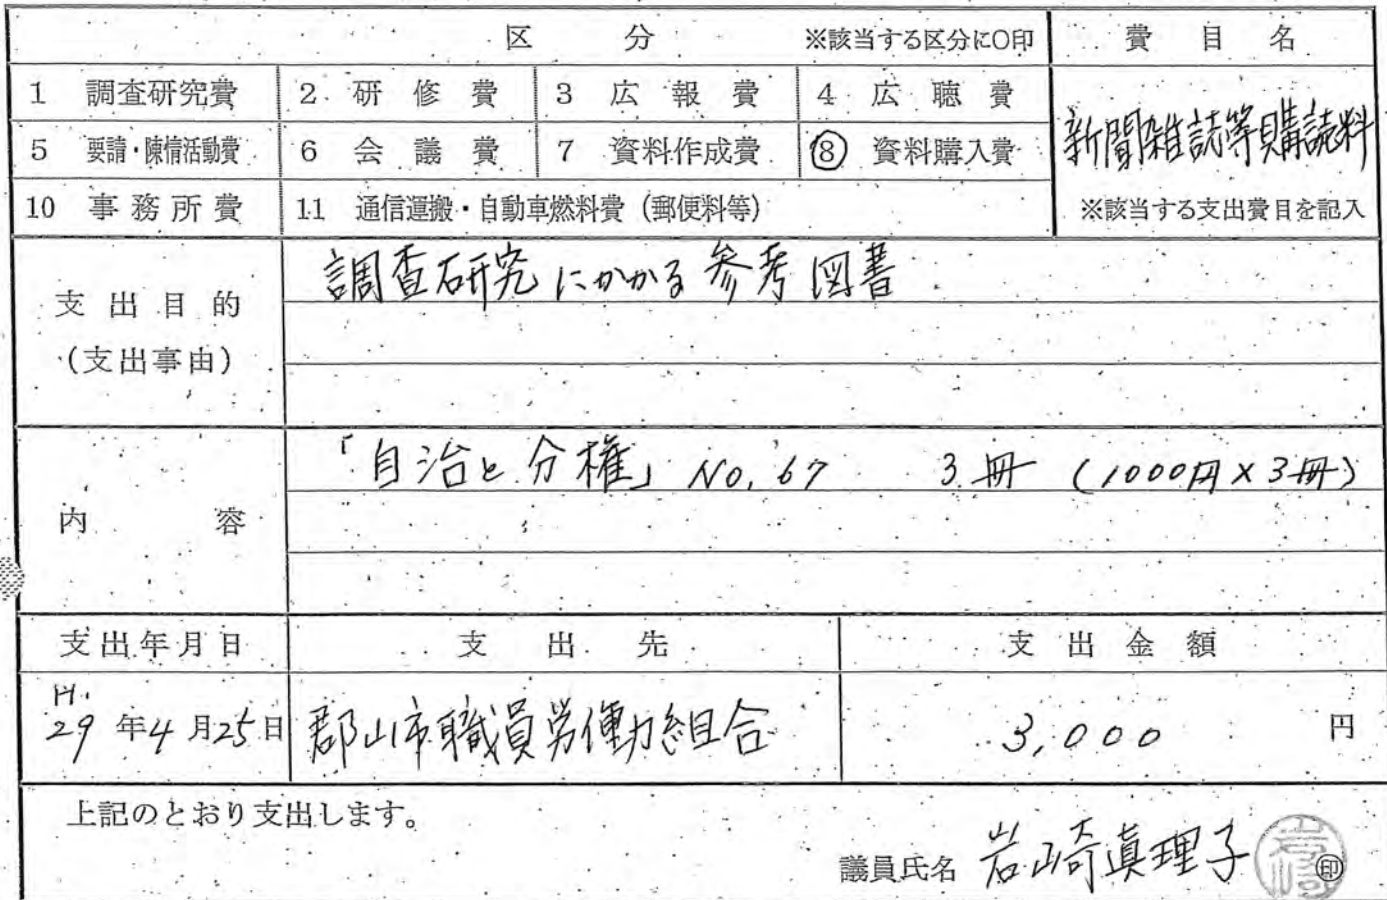 区 分 ※該当する区分に○印 費 目 名
1 調査研究費 2 研 修 費 3 広 報 費 4 広 聴 費
新聞雑誌等購読料
5 要請・陳情活動費 6 会 議 費 7 資料作成費 ⑧ 資料購入費
10 事 務 所 費 11 通信運搬・自動車燃料費（郵便料等） ※該当する支出費目を記入
調査研究にかかる参考図書
支 出 目 的
（支出事由）
「自治と分権」 No. 67 3冊 (1000円×3冊)
内 容
支出年月日 支 出 先 支 出 金 額
H.
29 年4 月25日 郡山市職員労働組合 3,000 円
上記のとおり支出します。
議員氏名 岩崎真理子 ㊞